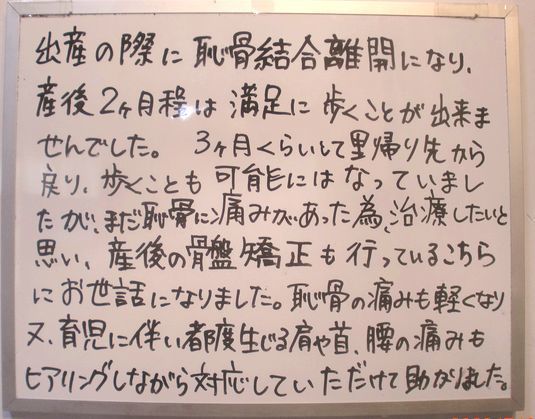 出産の際に恥骨結合離開になり、
産後2ヶ月程は満足に歩くことが出来ま
せんでした。 3ヶ月くらいして里帰り先から
戻り、歩くことも可能にはなっていまし
たが、まだ恥骨に痛みがあった為、治療したいと
思い、産後の骨盤矯正も行っているこちら
にお世話になりました。恥骨の痛みも軽くなり
又、育児に伴い都度生じる肩や首、腰の痛みも
ヒアリングしながら対応していただけて助かりました。